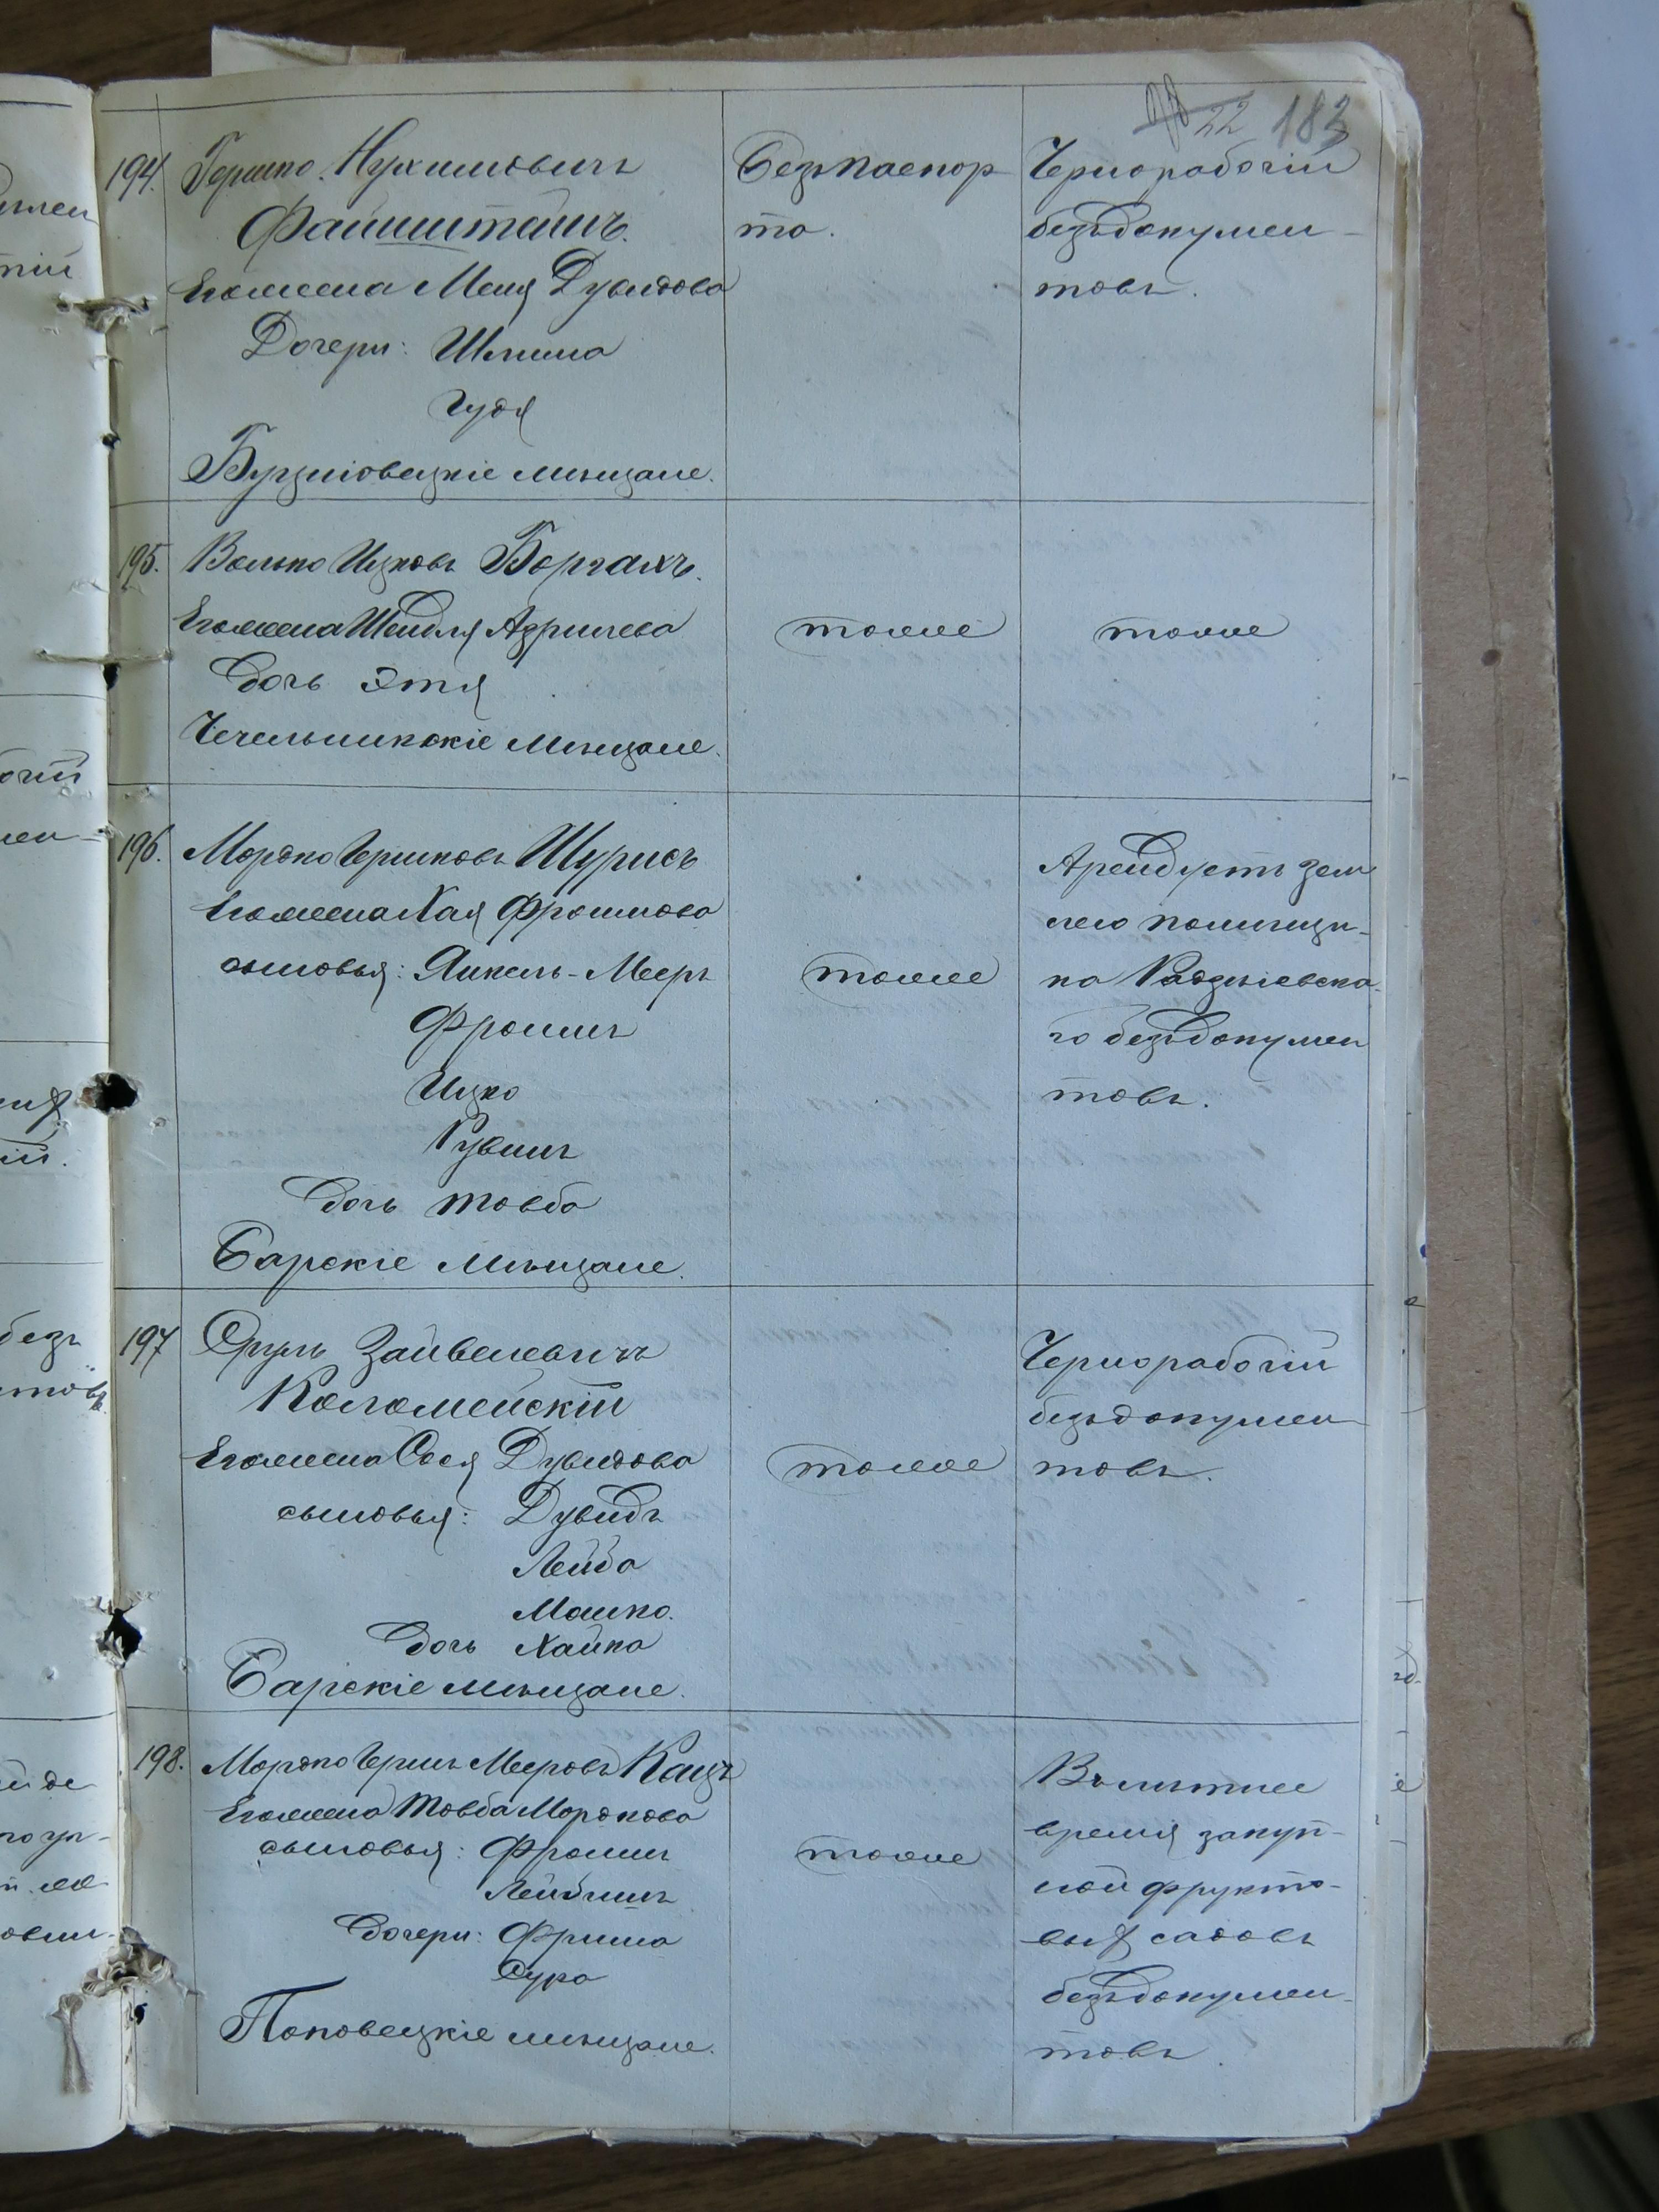 22 183
194. Гершко Нухимовичъ
Файнштейнъ.
Его жена Меня Дувидова
Дочери: Шлима
Гудя
Бугшовецкіе мѣщане.
Безъ паспор
та.
Чернорабочій
безъ докумен-
товъ.
195. Волько Ицковъ Боргахъ.
Его жена Шейдля Азрилева
дочь Этя
Чечельникскіе мѣщане.
тоже
тоже
196. Мордко Гершковъ Шурисъ
Его жена Хая Фроимова
сыновья: Янкель-Мееръ
Фроимъ
Ицко
Рувинъ
дочь Товба
Барскіе мѣщане.
тоже
Арендуетъ зем
лею помѣщи-
ка Радзіевска-
го безъ докумен
товъ.
197 Сруль Зайвелевичъ
Коломейскій
Его жена Сося Дувидова
сыновья: Дувидъ
Лейба
Мошко.
дочь Хайка
Барскіе мѣщане.
тоже
Чернорабочій
безъ докумен
товъ.
198. Мордко Гершъ Мееровъ Кацъ
Его жена Товба Мордкова
сыновья: Фроимъ
Лейбишъ
дочери: Фрима
Сура
Поповецкіе мѣщане.
тоже
Въ лѣтнее
время закуп-
кой фрукто-
выхъ садовъ
безъ докумен-
товъ.